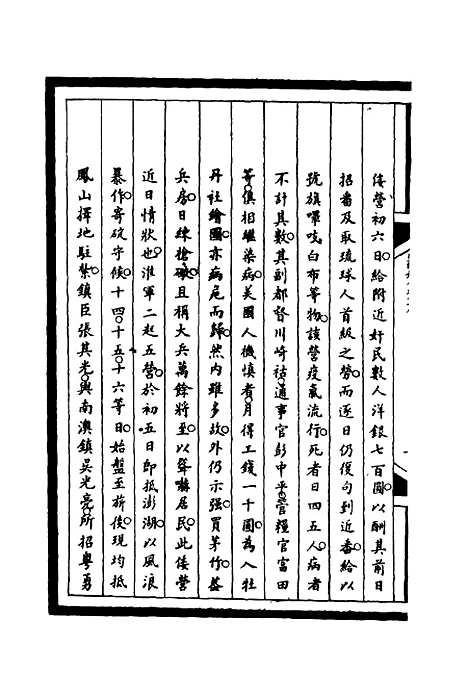 倭營初六日給附近奸民數人洋銀七百圓以酬其前日
招番及取琉球人首級之勞而逐日仍復句到近番給以
號旗嗶吱白布等物該營疫氣流行死者日四五人病者
不計其數其副都督川崎祐通事官彭中平管糧官富田
等俱相繼染病美國人機慎者月得工錢一千圓為入牡
丹社繪圖亦病危而歸然內雖多故外仍示強買茅竹葢
兵房日練槍礮且稱大兵萬餘將至以聳嚇居民此倭營
近日情狀也淮軍二起五營於初五日即抵澎湖以風浪
暴作寄碇守候十四十五十六等日始盤至旂後現均抵
鳳山擇地駐紮鎮臣張其光與南澳鎮吳光亮所招粵勇